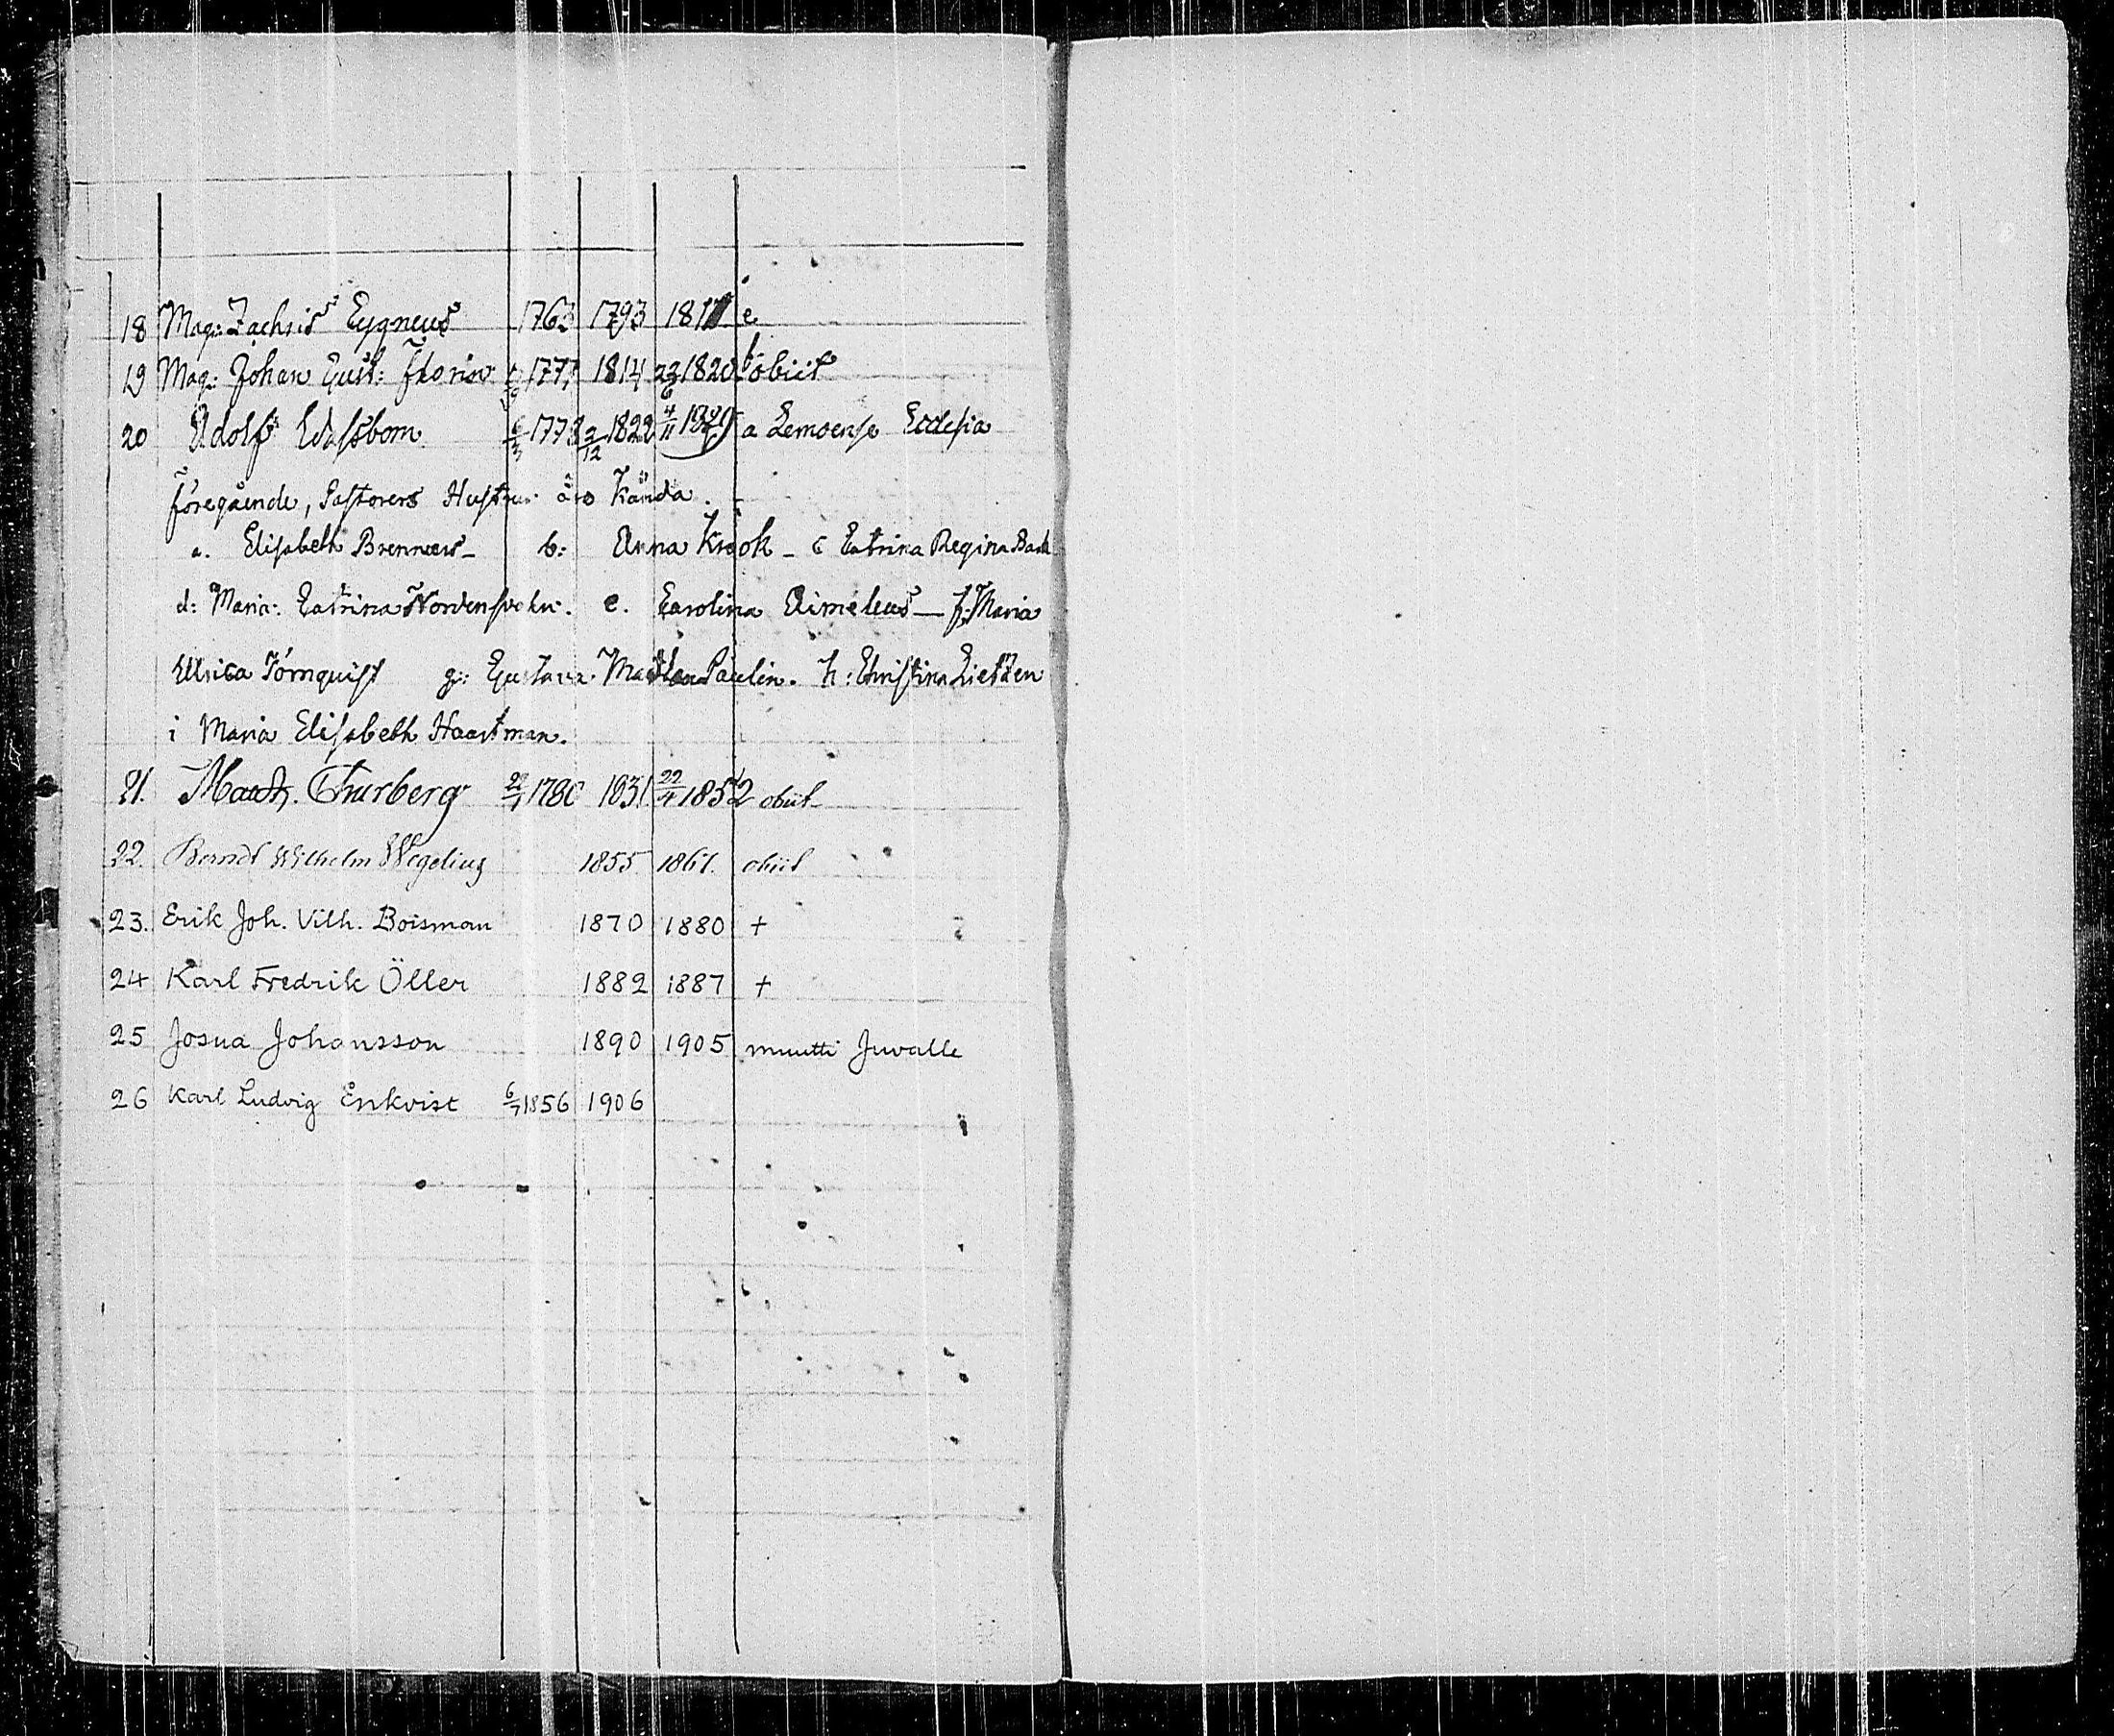 18 Mag: Zachris Cygneus 1763 1793 181 e
19 Mag: Johan Gust: Florin 1777 1814 23/6 1820 obiit
20 Adolf Edelsbom 6/3 1778 2/12 1822 4/11 1829 a Lemoense Ecclesia
föregående, Pastorers Hustrur äro Kända.
a. Elisabeth Brenner – b: Anna Krook – c Catrina Regina Back
d: Maria: Catrina Nordenswahn. e. Carolina Aimeleus – f: Maria
Ulrica Törnquist g: Gustava Paulin. h: Christina Lietzen
i Maria Elisabeth Haartman.
21. Matth. Thurberg 1780 1831 22/4 1852 obiit
22. Berndt Wilhelm Wegelius 1855 1861. obiit
23. Erik Joh. Vilh. Boisman 1870 1880 +
24 Karl Fredrik Öller 1882 1887 +
25 Josua Johansson 1890 1905 muutti Juvalle
26 Karl Ludvig Enkvist 6/7 1856 1906